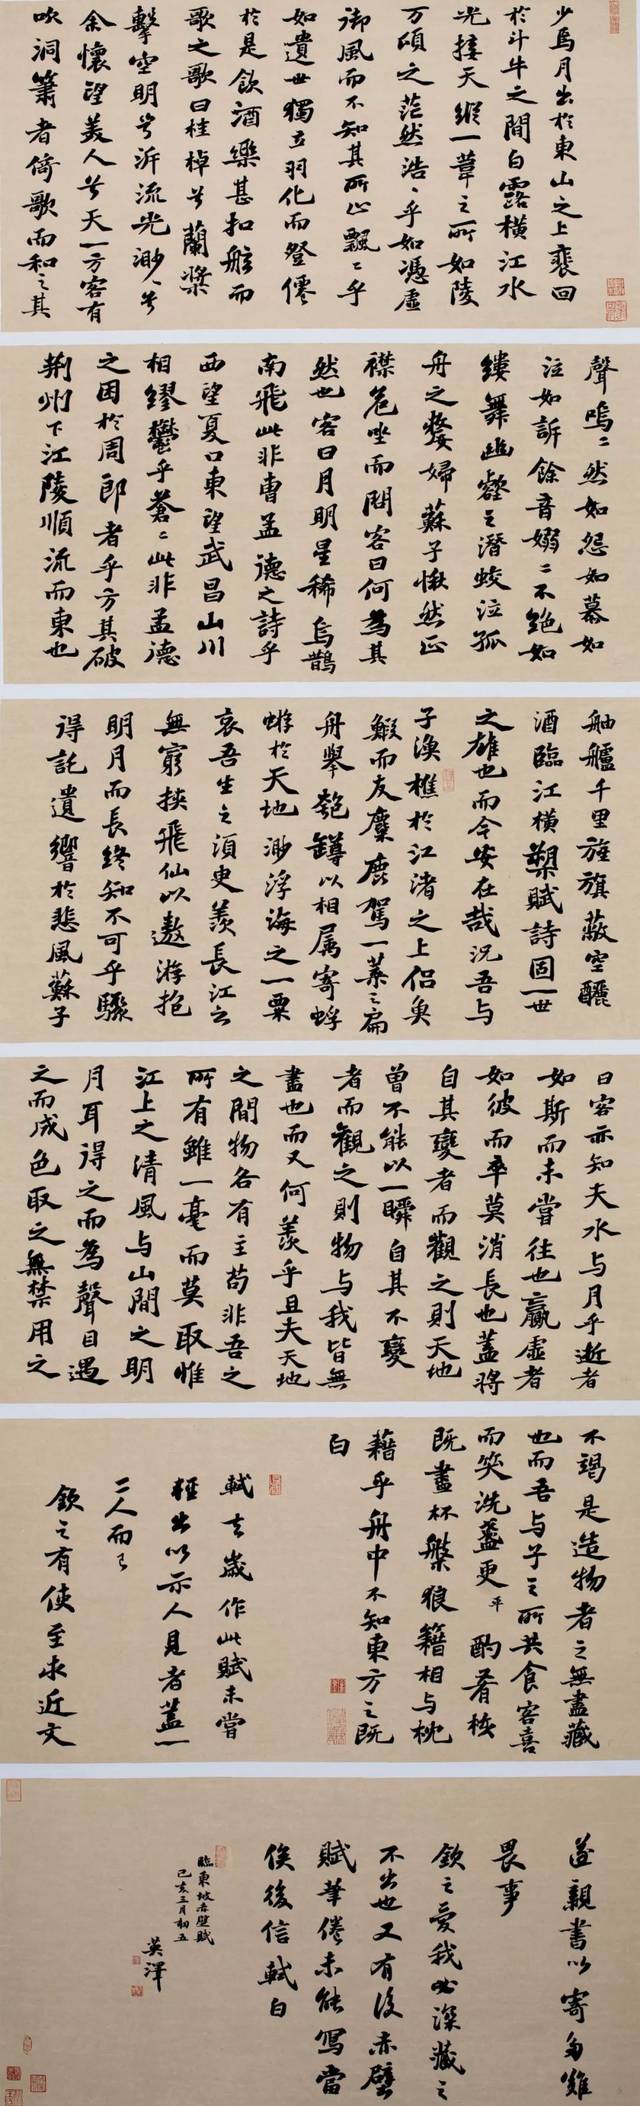 少焉月出於東山之上裵回
於斗牛之間白露橫江水
光接天縱一葦之所如陵
万頃之茫然浩〻乎如馮虛
御風而不知其所止飄〻乎
如遺世獨立羽化而登僊
於是飲酒樂甚扣舷而
歌之歌曰桂棹兮蘭槳
擊空明兮泝流光渺〻兮
余懷望美人兮天一方客有
吹洞簫者倚歌而和之其
聲嗚〻然如怨如慕如
泣如訴餘音嫋〻不絕如
縷舞幽壑之潛蛟泣孤
舟之嫠婦蘇子愀然正
襟危坐而問客曰何為其
然也客曰月明星稀烏鵲
南飛此非曹孟德之詩乎
西望夏口東望武昌山川
相繆鬱乎蒼〻此非孟德
之困於周郎者乎方其破
荊州下江陵順流而東也
舳艫千里旌旗蔽空釃
酒臨江橫槊賦詩固一世
之雄也而今安在哉況吾與
子漁樵於江渚之上侶魚
鰕而友麋鹿駕一葉之扁
舟舉匏罇以相属寄蜉
蝣於天地渺浮海之一粟
哀吾生之須臾羨長江之
無窮挾飛仙以遨游抱
明月而長終知不可乎驟
得託遺響於悲風蘇子
曰客亦知夫水與月乎逝者
如斯而未嘗往也贏虛者
如彼而卒莫消長也蓋將
自其變者而觀之則天地
曾不能以一瞬自其不變
者而觀之則物與我皆無
盡也而又何羨乎且夫天地
之間物各有主苟非吾之
所有雖一毫而莫取惟
江上之清風與山間之明
月耳得之而為聲目遇
之而成色取之無禁用之
不竭是造物者之無盡藏
也而吾與子之所共食客喜
而笑洗盞更平酌肴核
既盡杯槃狼籍相與枕
藉乎舟中不知東方之既
白
軾去歲作此賦未嘗
輕出以示人見者蓋一
二人而已
欽之有使至求近文
遂親書以寄多難
畏事
欽之愛我必深藏之
不出也又有後赤壁
賦筆倦未能寫當
俟後信軾白
臨東坡赤壁賦
己亥三月初五
英澤